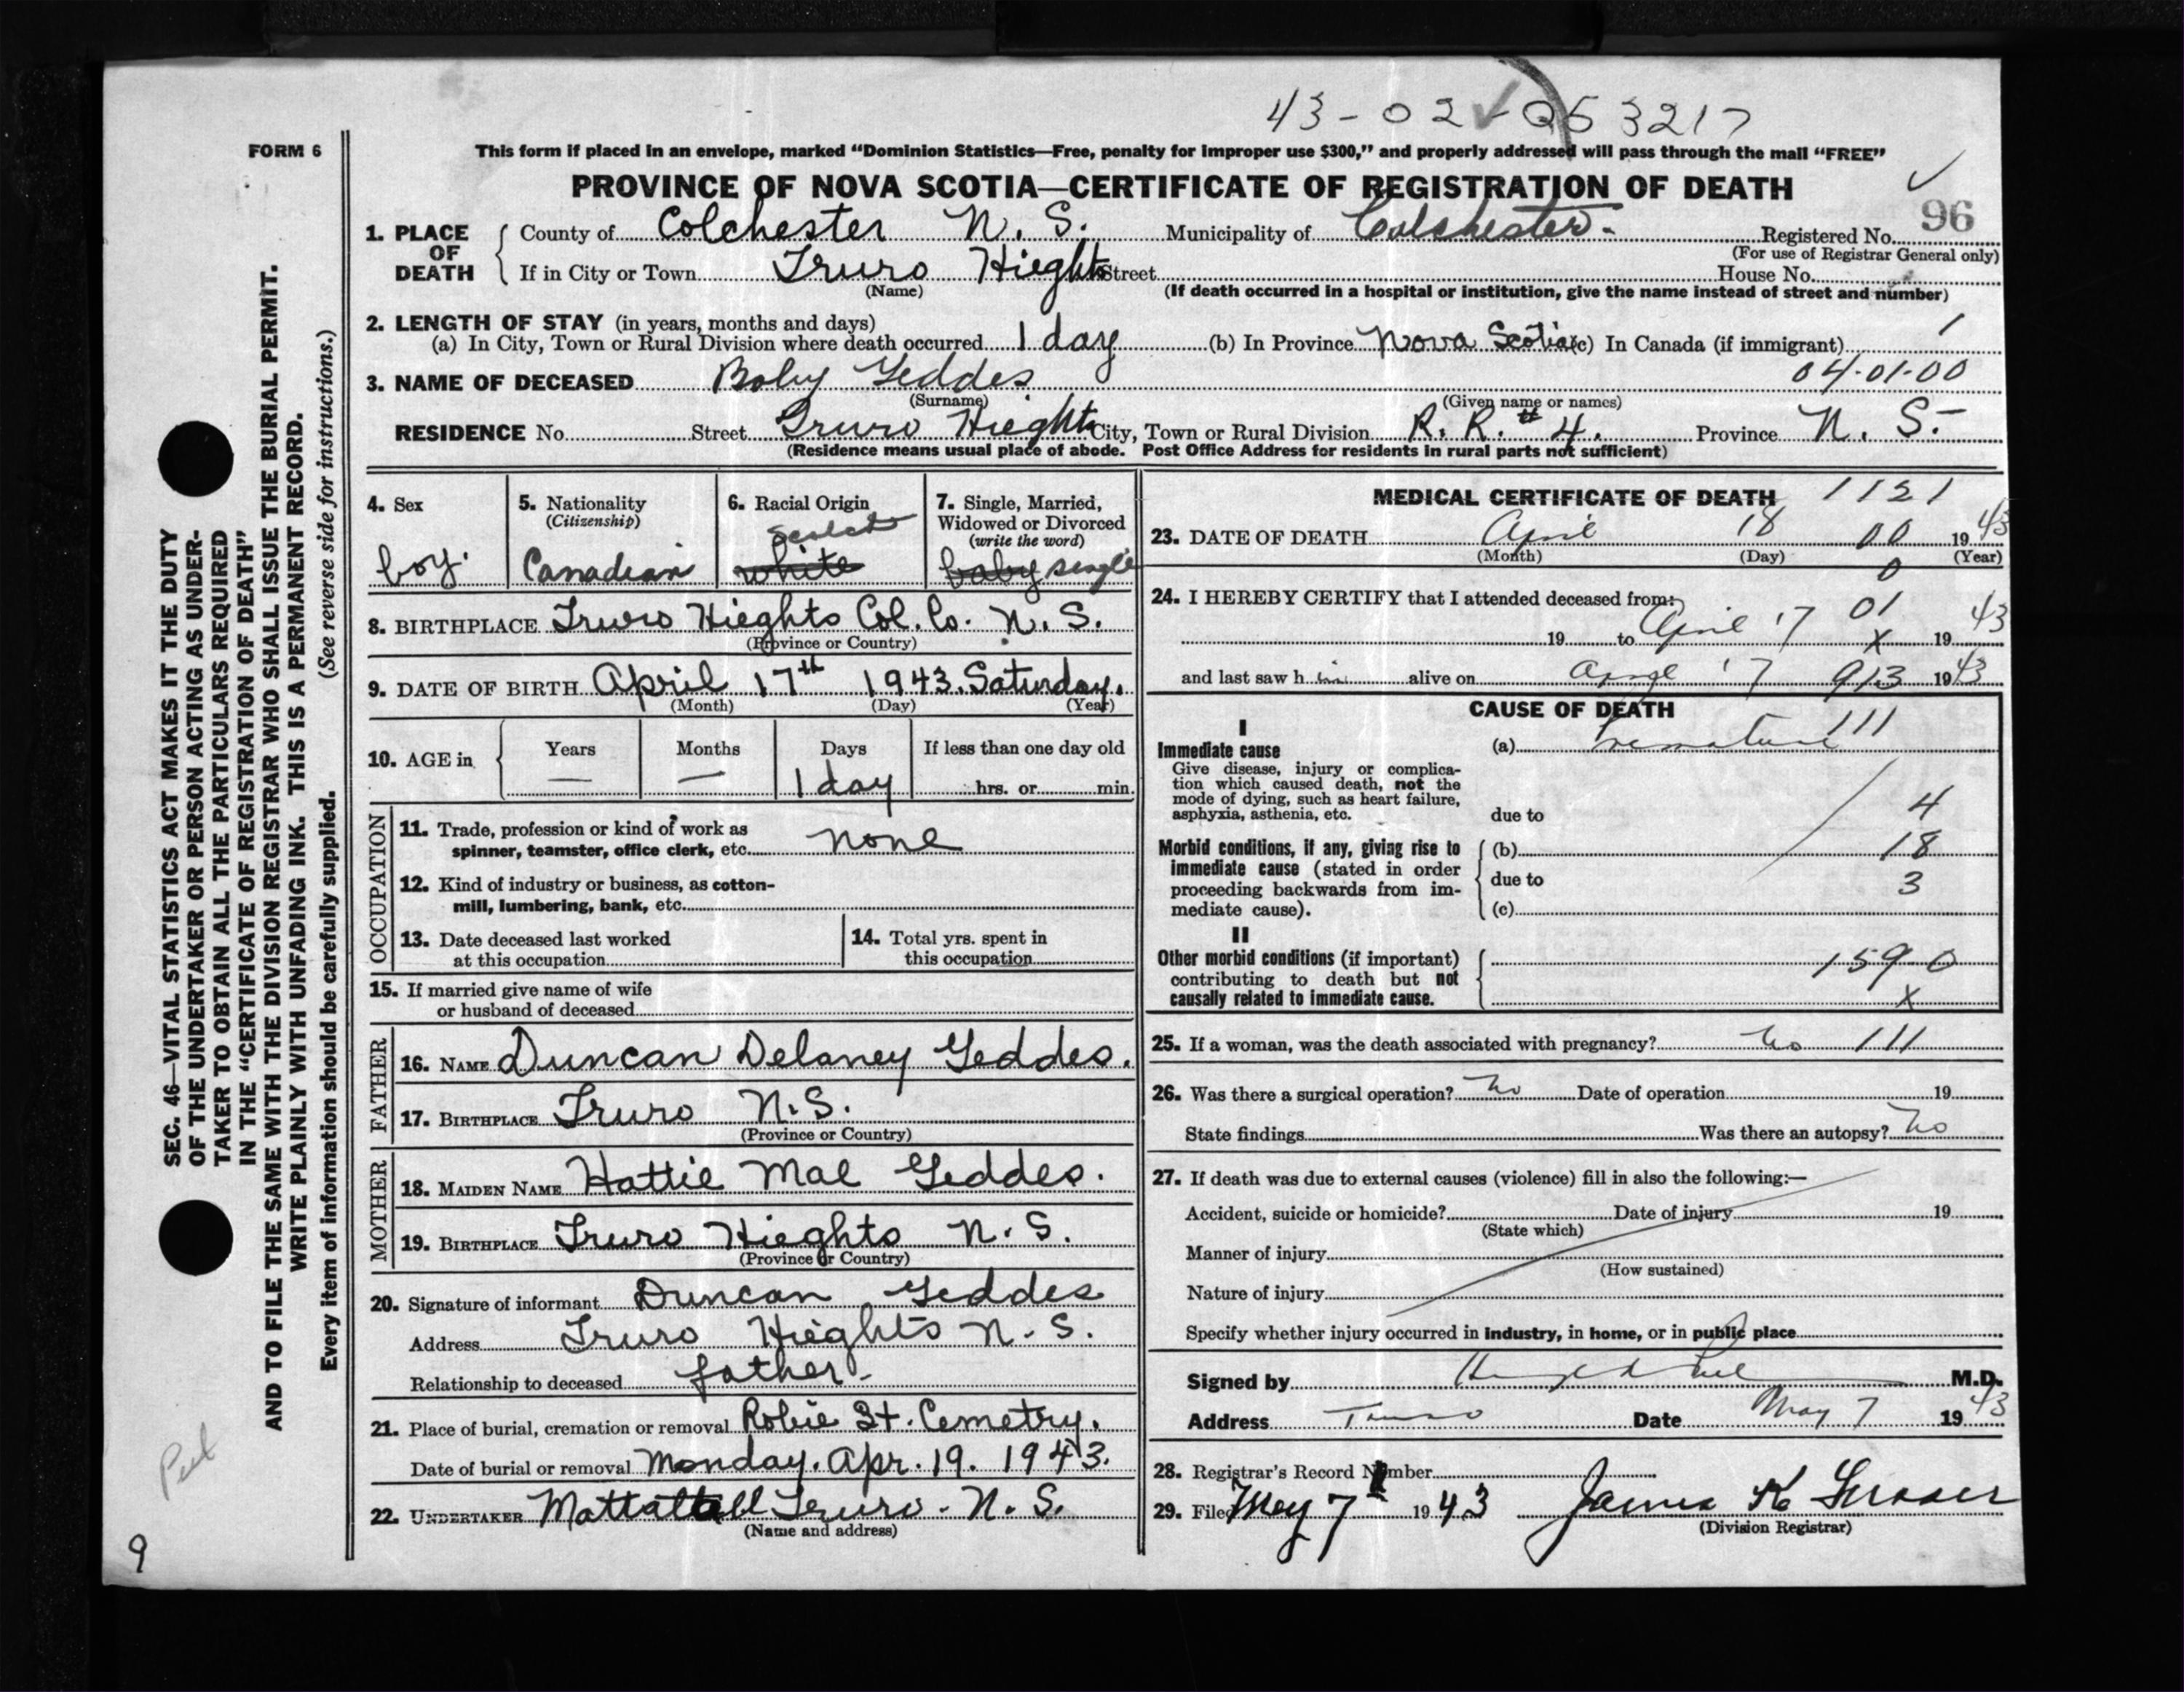 43-02-053217
FORM 6
This form if placed in an envelope, marked "Dominion Statistics—Free, penalty for improper use $300," and properly addressed will pass through the mail "FREE"
PROVINCE OF NOVA SCOTIA—CERTIFICATE OF REGISTRATION OF DEATH
96
1. PLACE OF DEATH { County of Colchester N. S. Municipality of Colchester. Registered No.
(For use of Registrar General only)
If in City or Town Truro Hieghts Street House No.
(Name)
(If death occurred in a hospital or institution, give the name instead of street and number)
2. LENGTH OF STAY (in years, months and days)
(a) In City, Town or Rural Division where death occurred 1 day (b) In Province Nova Scotia (c) In Canada (if immigrant) 1
3. NAME OF DECEASED Baby Geddes 04-01-00
(Surname) (Given name or names)
RESIDENCE No. Street Truro Hieghts City, Town or Rural Division R. R. # 4. Province N. S.-
(Residence means usual place of abode. Post Office Address for residents in rural parts not sufficient)
4. Sex
boy.
5. Nationality
(Citizenship)
Canadian
6. Racial Origin
Scotch
white
7. Single, Married,
Widowed or Divorced
(write the word)
baby single
8. BIRTHPLACE Truro Hieghts Col. Co. N. S.
(Province or Country)
9. DATE OF BIRTH April 17th 1943. Saturday.
(Month) (Day) (Year)
10. AGE in { Years Months Days If less than one day old
— — 1 day hrs. or min.
OCCUPATION
11. Trade, profession or kind of work as
spinner, teamster, office clerk, etc. none
12. Kind of industry or business, as cotton-
mill, lumbering, bank, etc.
13. Date deceased last worked
at this occupation
14. Total yrs. spent in
this occupation
15. If married give name of wife
or husband of deceased
FATHER
16. NAME Duncan Delaney Geddes.
17. BIRTHPLACE Truro N.S.
(Province or Country)
MOTHER
18. MAIDEN NAME Hattie Mae Geddes.
19. BIRTHPLACE Truro Hieghts N. S.
(Province or Country)
20. Signature of informant Duncan Geddes
Address Truro Hieghts N. S.
Relationship to deceased father.
21. Place of burial, cremation or removal Robie St. Cemetry.
Date of burial or removal Monday. Apr. 19. 1943.
22. UNDERTAKER Mattatall Truro. N. S.
(Name and address)
MEDICAL CERTIFICATE OF DEATH 1121
23. DATE OF DEATH April 18 00 1943
(Month) (Day) (Year)
0
24. I HEREBY CERTIFY that I attended deceased from:
01
19 to April 17 x 1943
and last saw him alive on April 17 913 1943
CAUSE OF DEATH
I
Immediate cause
Give disease, injury or complica-
tion which caused death, not the
mode of dying, such as heart failure,
asphyxia, asthenia, etc.
(a) Premature 111
due to 4
Morbid conditions, if any, giving rise to
immediate cause (stated in order
proceeding backwards from im-
mediate cause).
(b) 18
due to 3
(c)
II
Other morbid conditions (if important)
contributing to death but not
causally related to immediate cause.
1590
x
25. If a woman, was the death associated with pregnancy? No 111
26. Was there a surgical operation? No Date of operation 19
State findings Was there an autopsy? No
27. If death was due to external causes (violence) fill in also the following:—
Accident, suicide or homicide? Date of injury 19
(State which)
Manner of injury
(How sustained)
Nature of injury
Specify whether injury occurred in industry, in home, or in public place
Signed by M.D.
Address Truro Date May 7 1943
28. Registrar's Record Number
29. Filed May 7 1943 James K
(Division Registrar)
SEC. 46—VITAL STATISTICS ACT MAKES IT THE DUTY
OF THE UNDERTAKER OR PERSON ACTING AS UNDER-
TAKER TO OBTAIN ALL THE PARTICULARS REQUIRED
IN THE "CERTIFICATE OF REGISTRATION OF DEATH"
AND TO FILE THE SAME WITH THE DIVISION REGISTRAR WHO SHALL ISSUE THE BURIAL PERMIT.
WRITE PLAINLY WITH UNFADING INK. THIS IS A PERMANENT RECORD.
Every item of information should be carefully supplied. (See reverse side for instructions.)
9